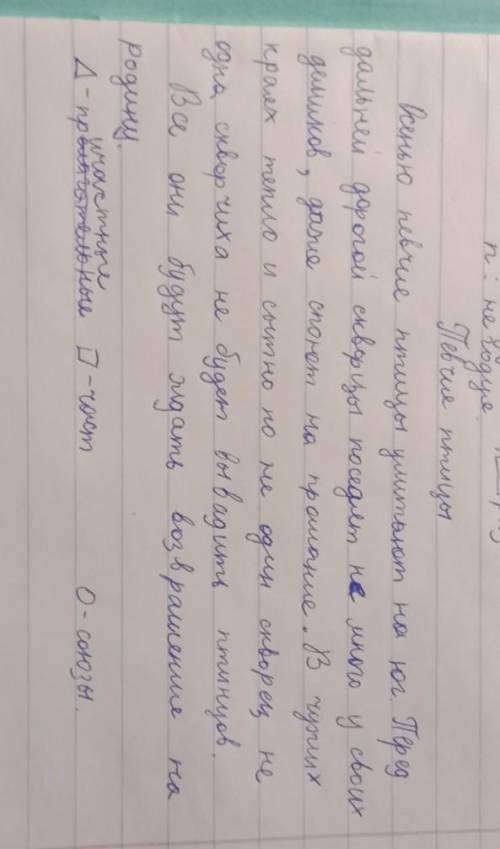 Певчие птицы
Осенью певчие птицы улитают на юг. Перед
дальней дорогой скворцы поседят не много у своих
домиков, даже споют на прощание. В чужих
краех тепло и сытно но не один скворец не
одна скворчиха не будет вывадить птинцов.
Все они будут ждать возвращение на
родину.
Δ-причастные □-част О-союзы.